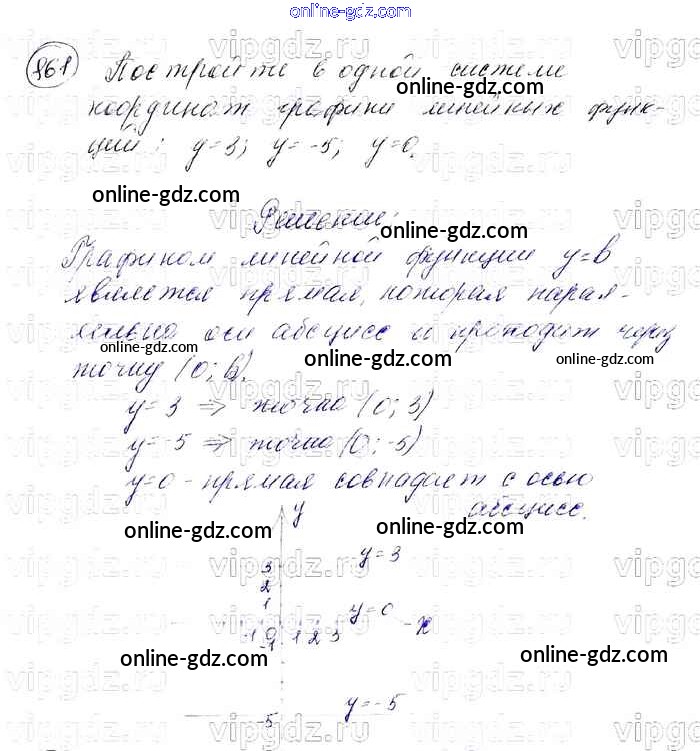 online-gdz.com
861 Постройте в одной системе
online-gdz.com
координат графики линейных функ-
ций: y=3; y=-5; y=0.
online-gdz.com
Решение:
online-gdz.com
Графиком линейной функции y=b
является прямая, которая парал-
лельна оси абсцисс и проходит через
online-gdz.com online-gdz.com online-gdz.com
точку (0; b).
y=3 ⇒ точка (0; 3)
y=-5 ⇒ точка (0; -5)
y=0 - прямая совпадает с осью
абсцисс.
y
online-gdz.com online-gdz.com
y=3
3
2
1
y=0
-1 0 1 2 3 x
-1
online-gdz.com online-gdz.com
y=-5
-5
vipgdz.ru